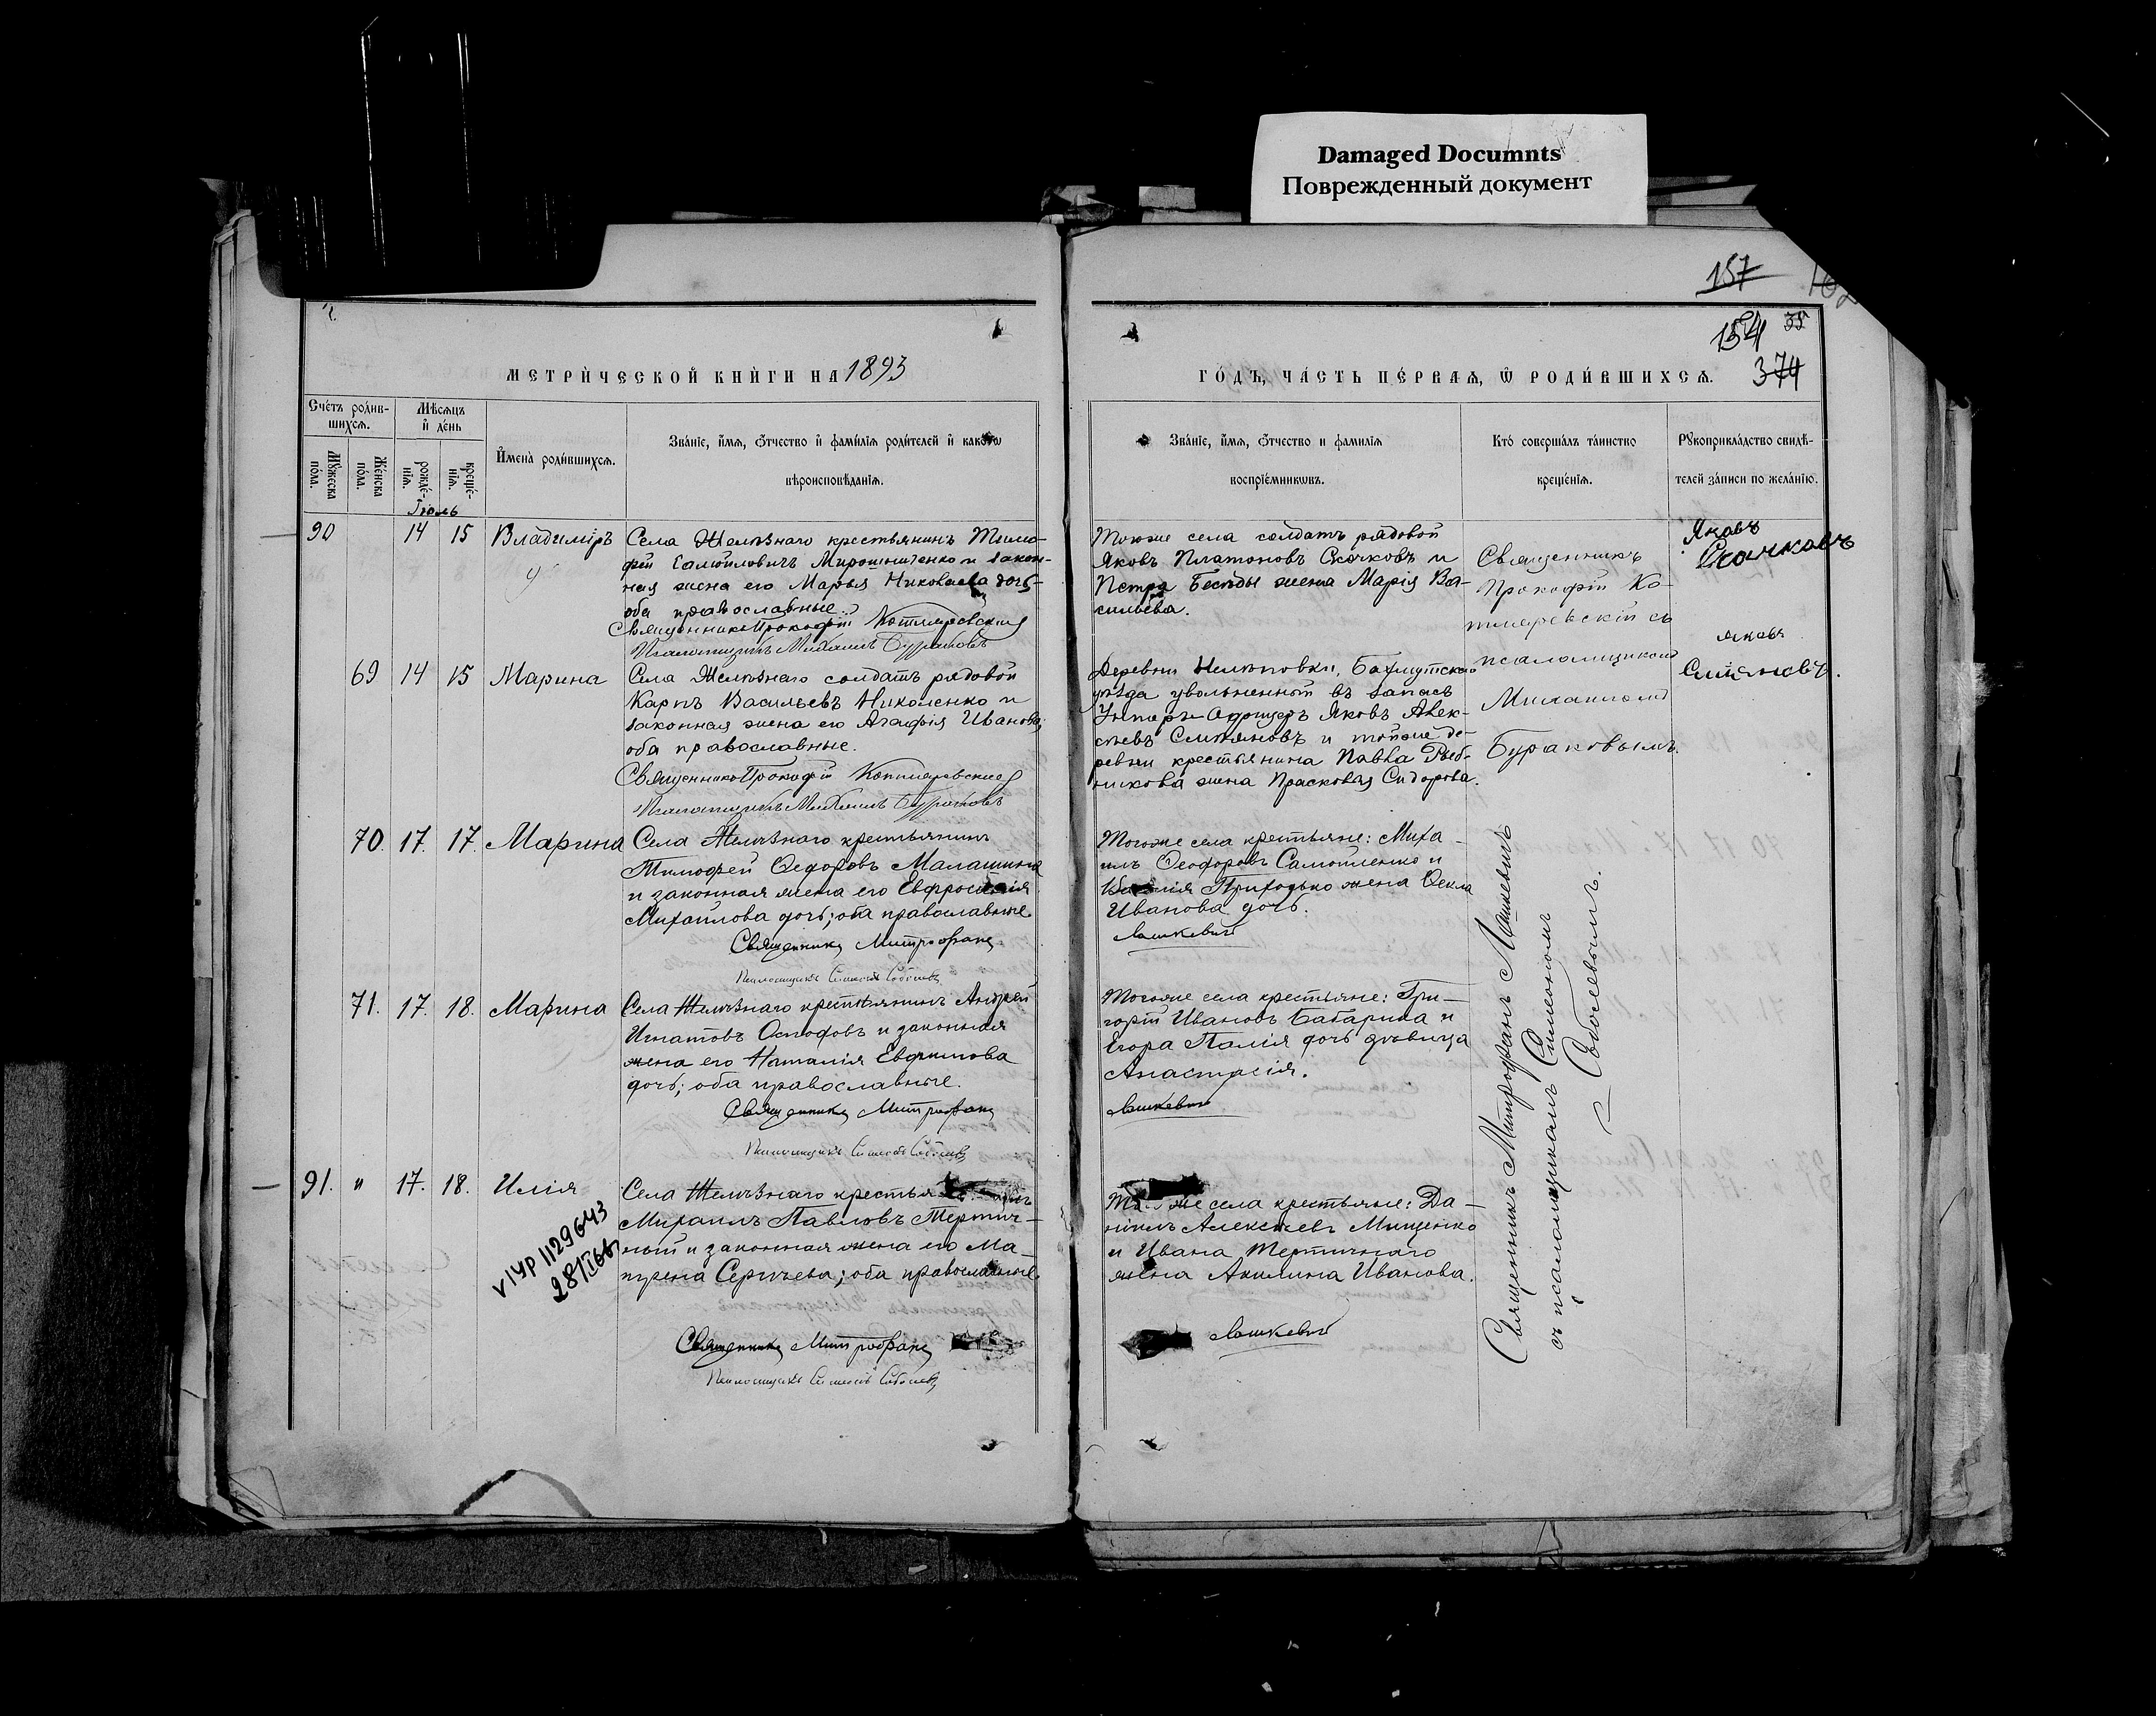 Damaged Documnts
Поврежденный документ
157
154
35
374
МЕТРИ́ЧЕСКОЙ КНИ́ГИ НА 1893
ГО́ДЪ, ЧА́СТЬ ПЕ́РВАѦ, Ѿ РОДИ́ВШИХСѦ.
Сче́тъ роди́в-
шихсѧ.
Мѣсѧцъ
и҆ де́нь
Мꙋ́жеска
по́ла.
Же́нска
по́ла.
рожде́-
нїѧ.
креще́-
нїѧ.
И҆мена̀ роди́вшихсѧ.
Зва́нїе, и҆́мѧ, ѻ҆́тчество и҆ фами́лїѧ роди́телей и҆ како́гѡ
вѣроисповѣ́данїѧ.
Зва́нїе, и҆́мѧ, ѻ҆́тчество и фамилїѧ
воспрїе́мникѡвъ.
Кто́ соверша́лъ та́инство
креще́нїѧ.
Рꙋкоприкла́дство свидѣ́-
телей за́писи по жела́нїю.
Іюль
90 14 15 Владиміръ
Села Желѣзнаго крестьянинъ Тимо-
фей Самойловичъ Мирошниченко и закон-
ная жена его Марья Николаева дочь
оба православные.
Священникъ Прокофій Котляревскій
Псаломщикъ Михаилъ Бураковъ
Тогоже села солдатъ рядовой
Яковъ Платоновъ Скачковъ и
Петра Бесѣды жена Марія Ва-
сильева.
Священникъ
Прокофій Ко-
тляревскій съ
псаломщикомъ
Михаиломъ
Бураковымъ.
Яковъ
Скачковъ
69 14 15 Марина
Села Желѣзнаго солдатъ рядовой
Карпъ Васильевъ Николенко и
законная жена его Агафія Иванова;
оба православные.
Священникъ Прокофій Котляревскій
Псаломщикъ Михаилъ Бураковъ
Деревни Нелѣповки, Бахмутскаго
уѣзда увольненный въ запасъ
Унтеръ-Офицеръ Яковъ Алек-
сѣевъ Слипяновъ и тойже де-
ревни крестьянина Павла Рыб-
никова жена Прасковья Сидорова.
Яковъ
70. 17. 17. Марина
Села Желѣзнаго крестьянинъ
Тимофей Ѳедоровъ Малашина
и законная жена его Евфросинія
Михайлова дочь; оба православные.
Священникъ Митрофанъ
Псаломщикъ Симеонъ Соболевъ
Тогоже села крестьяне: Миха-
илъ Ѳеодоровъ Самойленко и
Приходько жена Ѳекла
Иванова дочь.
Лашкевичъ
71. 17. 18. Марина
Села Желѣзнаго крестьянинъ Андрей
Игнатовъ Осьпофовъ и законная
жена его Наталія Евфимова
дочь; оба православные.
Священникъ Митрофанъ
Псаломщикъ Симеонъ Соболевъ
Тогоже села крестьяне: Гри-
горій Ивановъ Бабарика и
Егора Палія дочь дѣвица
Анастасія.
Лашкевичъ
91. " 17. 18. Илія
Села Желѣзнаго крестья
Михаилъ Павловъ Тертич-
ный и законная жена его Ма-
трена Сергѣева; оба православные.
Священникъ Митрофанъ
Псаломщикъ Симеонъ Соболевъ
же села крестьяне: Да-
ніилъ Алексѣевъ Мищенко
и Ивана Тертичнаго
жена Акилина Иванова.
Лашкевичъ
Священникъ Митрофанъ Лашкевичъ
съ псаломщикомъ Симеономъ
Соболевымъ.
VІУР 1129643